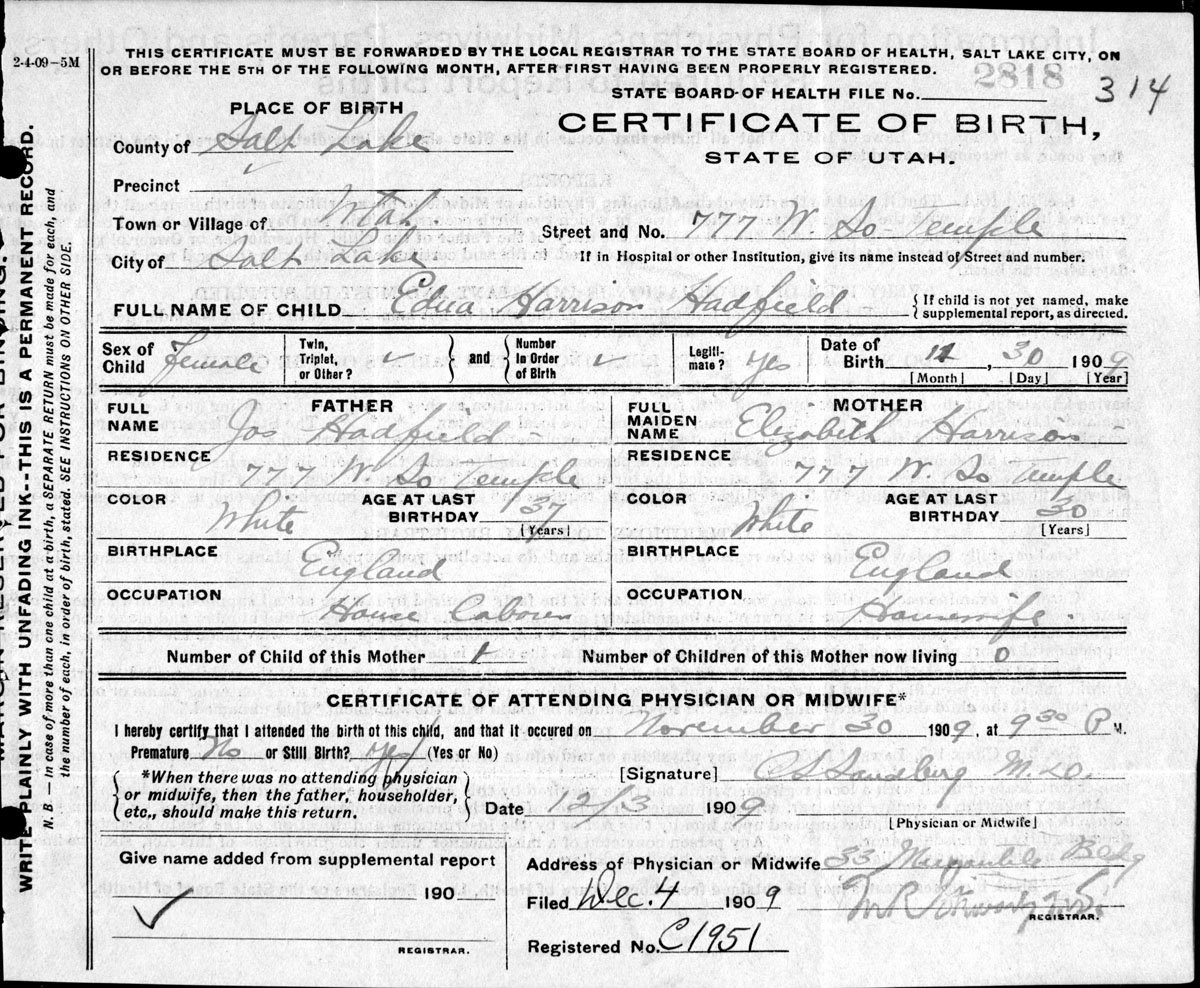 2-4-09-5M
THIS CERTIFICATE MUST BE FORWARDED BY THE LOCAL REGISTRAR TO THE STATE BOARD OF HEALTH, SALT LAKE CITY, ON
OR BEFORE THE 5TH OF THE FOLLOWING MONTH, AFTER FIRST HAVING BEEN PROPERLY REGISTERED.
2818
314
STATE BOARD OF HEALTH FILE No.
PLACE OF BIRTH
CERTIFICATE OF BIRTH,
STATE OF UTAH.
County of Salt Lake
Precinct
Town or Village of Utah
Street and No. 777 W. So Temple
City of Salt Lake
If in Hospital or other Institution, give its name instead of Street and number.
FULL NAME OF CHILD Edna Harrison Hadfield
{If child is not yet named, make supplemental report, as directed.
Sex of Child Female
Twin, Triplet, or Other? 1 } and { Number in Order of Birth 1
Legitimate? Yes
Date of Birth 11, 30 1909
[Month] [Day] [Year]
FATHER
FULL NAME Jos Hadfield
RESIDENCE 777 W. So Temple
COLOR White AGE AT LAST BIRTHDAY 37 [Years]
BIRTHPLACE England
OCCUPATION House Laborer
MOTHER
FULL MAIDEN NAME Elizabeth Harrison
RESIDENCE 777 W. So Temple
COLOR White AGE AT LAST BIRTHDAY 30 [Years]
BIRTHPLACE England
OCCUPATION Housewife.
Number of Child of this Mother 1 Number of Children of this Mother now living 0
CERTIFICATE OF ATTENDING PHYSICIAN OR MIDWIFE*
I hereby certify that I attended the birth of this child, and that it occurred on November 30 1909, at 9 30 P M.
Premature No or Still Birth? Yes (Yes or No)
{*When there was no attending physician
or midwife, then the father, householder,
etc., should make this return.}
[Signature] C S Sandberg M.D.
Date 12/3 1909
[Physician or Midwife]
Give name added from supplemental report
190
REGISTRAR.
Address of Physician or Midwife 33 Mercantile Bldg
Filed Dec. 4 1909
REGISTRAR.
Registered No. C1951
WRITE PLAINLY WITH UNFADING INK--THIS IS A PERMANENT RECORD.
N. B. — In case of more than one child at a birth, a SEPARATE RETURN must be made for each, and
the number of each, in order of birth, stated. SEE INSTRUCTIONS ON OTHER SIDE.